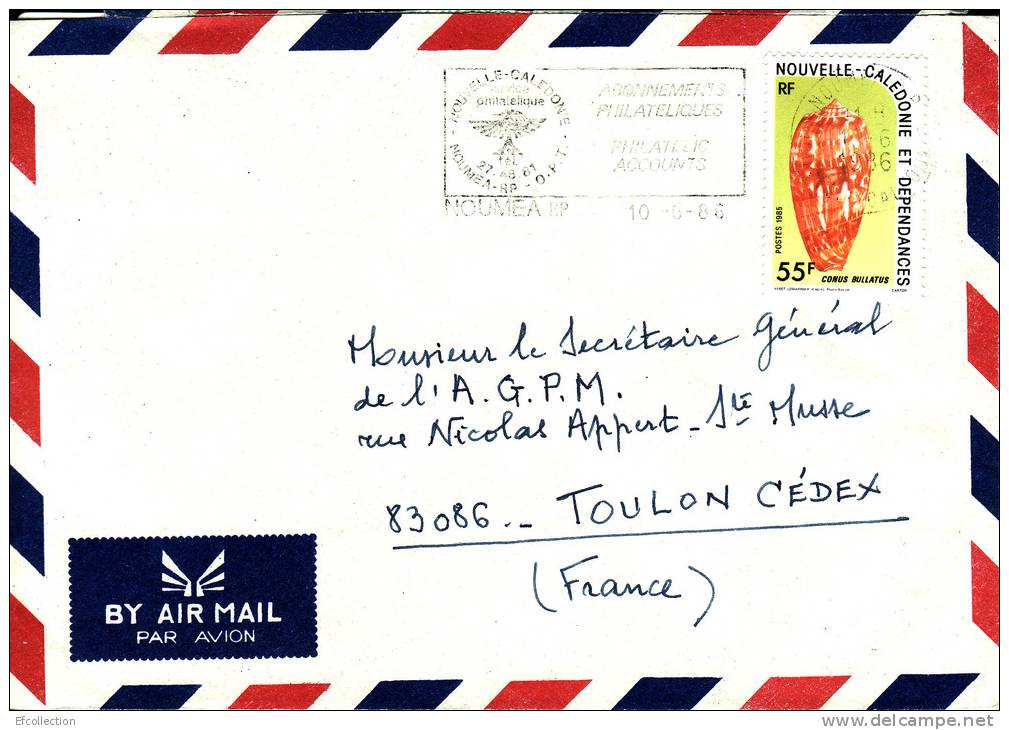 NOUVELLE-CALEDONIE
service
philatelique
Tél.
27.48.61
NOUMEA-RP - O.P.T.
ABONNEMENTS
PHILATELIQUES
PHILATELIC
ACCOUNTS
NOUMEA RP 10-6-86
NOUVELLE-CALEDONIE ET DEPENDANCES
RF
POSTES 1985
55F
CONUS BULLATUS
CARTOR
Monsieur le Secrétaire Général
de l'A.G.P.M.
rue Nicolas Appert - Ste Musse
83086 - TOULON CÉDEX
(France)
BY AIR MAIL
PAR AVION
Efcollection
www.delcampe.net